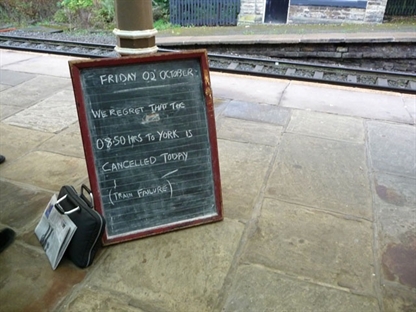 FRIDAY 02 OCTOBER.
WE REGRET THAT THE
08:50 HRS TO YORK IS
CANCELLED TODAY
(TRAIN FAILURE)